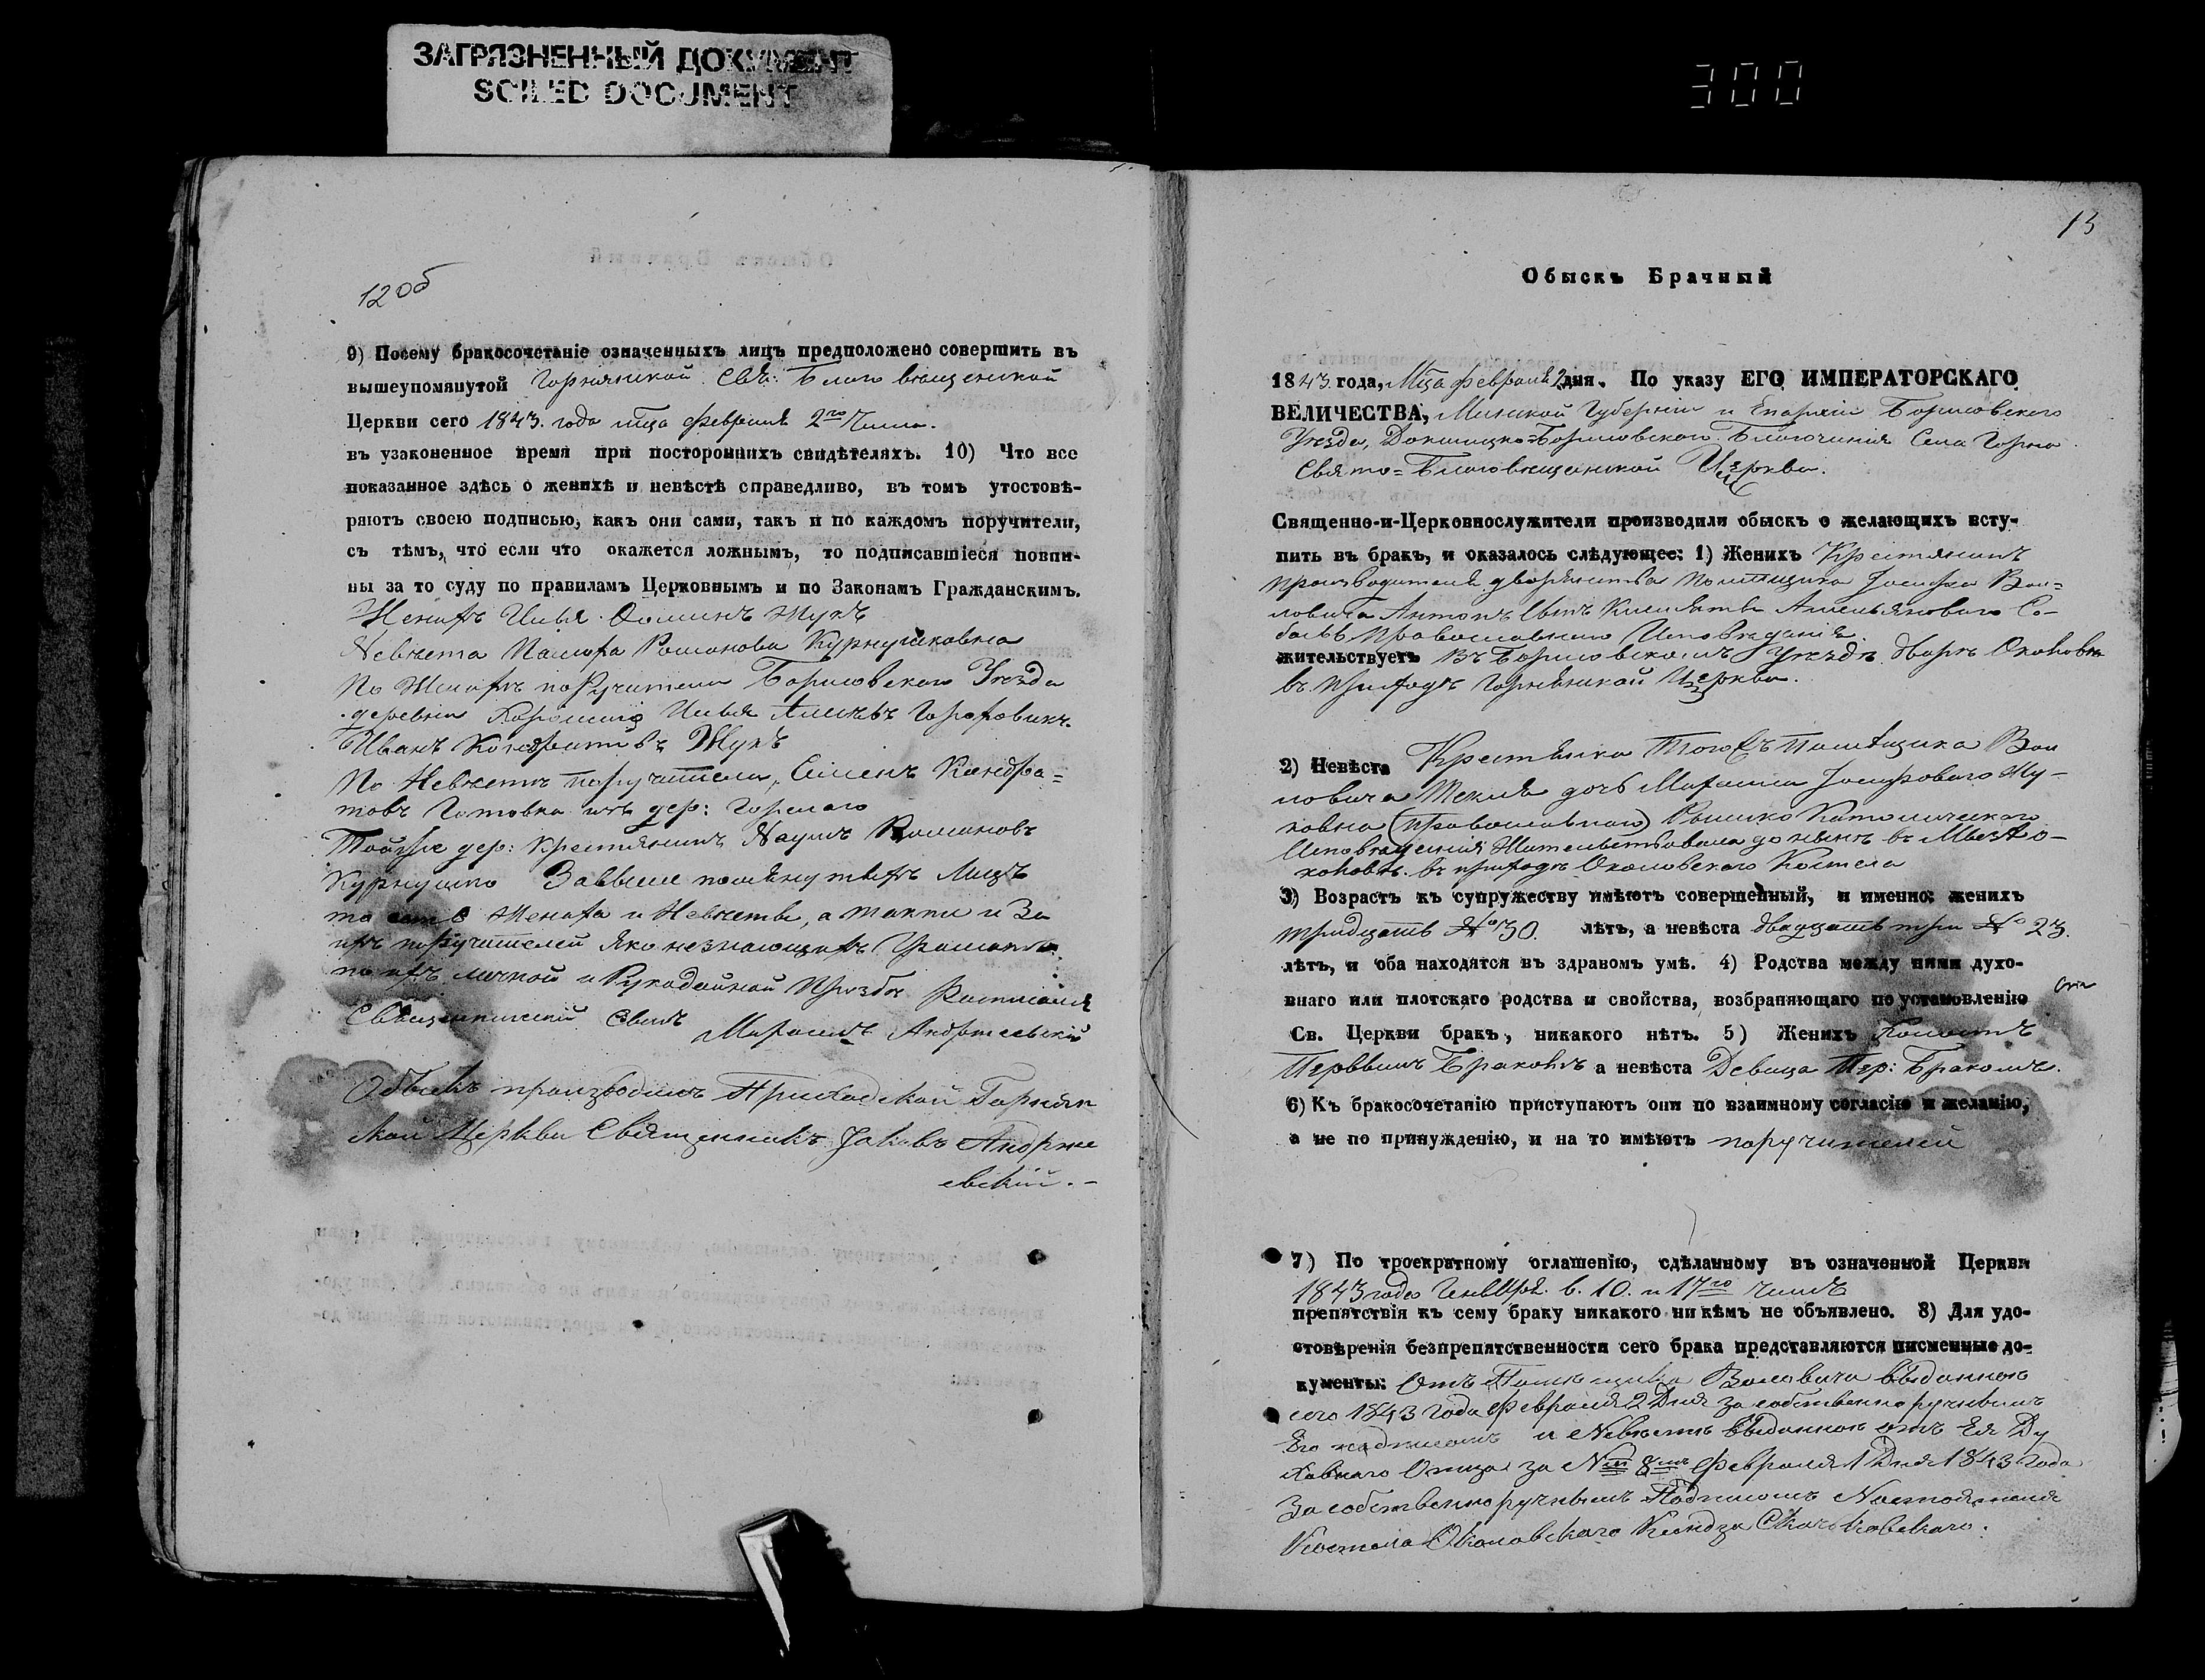 ЗАГРЯЗНЕННЫЙ ДОКУМЕНТ
SOILED DOCUMENT
300
12 об
9) Посему бракосочетаніе означенныхъ лицъ предположено совершить въ
вышеупомянутой Горнянской Свя: Благовѣщенской
Церкви сего 1843. года мца февраля 2го Числа.
въ узаконенное время при постороннихъ свидѣтеляхъ. 10) Что все
показанное здѣсь о женихѣ и невѣстѣ справедливо, въ томъ утостовѣ-
ряютъ своею подписью, какъ они сами, такъ и по каждомъ поручители,
съ тѣмъ, что если что окажется ложнымъ, то подписавшіеся повин-
ны за то суду по правиламъ Церковнымъ и по Законамъ Гражданскимъ.
Женихъ Илья Ѳоминъ Жукъ
Невѣста Романова Курнушковна
По Женихѣ поручители Борисовского Уезда
деревни Илья
Иванъ Кондратовъ Жукъ
По Невѣстѣ поручители, Семенъ Кондра=
товъ Готовка изъ дер:
Тойже дер: крестянинъ Наумъ Романовъ
Курнушко За всѣхъ помянутыхъ Лицъ
то есть Жениха и Невѣсты, а также и За
ихъ поручителей яко незнающихъ Грамоты
по ихъ личной и Рукодайной Прозбѣ Росписался
Священническій Сынъ
Андржеевскій
Обыскъ производилъ Приходской Горнян
ской Церкви Священникъ Іаковъ Андрже
евскій. -
13
Обыскъ Брачный
1843 года, Мца февраля 2 дня. По указу ЕГО ИМПЕРАТОРСКАГО
ВЕЛИЧЕСТВА, Минской Губерніи и Епархіи Борисовского
Уезда, Докшицко=Борисовского Благочинія Села Горно
Свято=Благовѣщенской Церкви.
Священно-и-Церковнослужители производили обыскъ о желающихъ всту-
пить въ бракъ, и оказалось слѣдующее: 1) Женихъ Крестянинъ
дворянства Помѣщика Іосифа Вол-
ловича Антонъ Сынъ Со-
боль Православнаго Исповѣданія.
жительствуетъ въ Борисовскомъ Уездѣ дворѣ Околовѣ
въ приходѣ Горнянской Церкви.
2) Невѣста Крестянка Тогожъ Помѣщика Вол
ловича Текля дочь Іосифоваго Жу-
ковна (Православнаго) Римско Католическаго
Исповѣданія Жительствовала до нынѣ въ Мѣст: О-
коловѣ въ приходѣ Околовского Костела
3) Возрастъ къ супружеству имѣютъ совершенный, и именно: женихъ
тридцать № 30. лѣтъ, а невѣста двадцать три № 23.
лѣтъ, и оба находятся въ здравомъ умѣ. 4) Родства между ними духо-
внаго или плотскаго родства и свойства, возбраняющаго по установленію
Св. Церкви бракъ, никакого нѣтъ. 5) Женихъ Холостъ
Первымъ Бракомъ а невѣста Девица Пер: Бракомъ.
6) Къ бракосочетанію приступаютъ они по взаимному согласію и желанію,
а не по принужденію, и на то имѣютъ поручителей
7) По троекратному оглашенію, сдѣланному въ означенной Церкви
1843 года Генваря. 6. 10. и 17го числъ
препятствія къ сему браку никакого ни кѣмъ не объявлено. 8) Для удо-
стовѣренія безпрепятственности сего брака представляются писменные до-
кументы: Отъ Помѣщика Воловича выданною
сего 1843 года февраля 2 Дня за собственноручнымъ
Его надписомъ и Невѣстѣ выданною отъ Ея Ду
ховнаго Отца за № 8мъ февраля 1 Дня 1843 года
За собственноручнымъ Подписомъ Настоятеля
Костела Околовского Ксендза